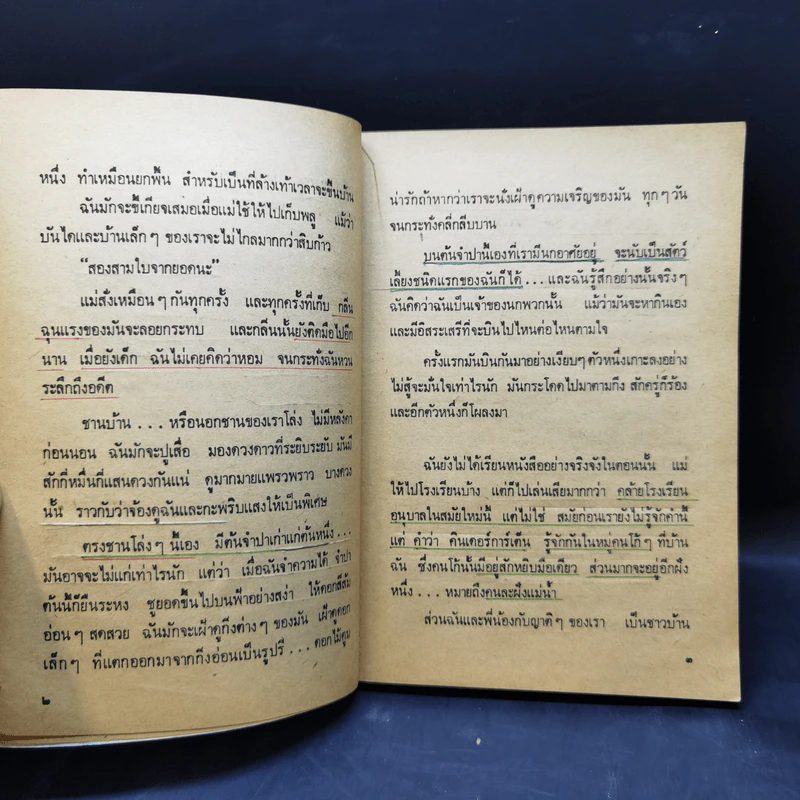 หนึ่ง ทำเหมือนยกพื้น สำหรับเป็นที่ล้างเท้าเวลาจะขึ้นบ้าน
ฉันมักจะขี้เกียจเสมอเมื่อแม่ใช้ให้ไปเก็บพลู แม้ว่า
บันไดและบ้านเล็กๆ ของเราจะไม่ไกลมากกว่าสิบก้าว
“สองสามใบจากยอดนะ”
แม่สั่งเหมือนๆ กันทุกครั้ง และทุกครั้งที่เก็บ กลิ่น
ฉุนแรงของมันจะลอยกระทบ และกลิ่นนั้นยังติดมือไปอีก
นาน เมื่อยังเด็ก ฉันไม่เคยคิดว่าหอม จนกระทั่งฉันหวน
ระลึกถึงอดีต
ชานบ้าน ... หรือนอกชานของเราโล่ง ไม่มีหลังคา
ก่อนนอน ฉันมักจะปูเสื่อ มองดวงดาวที่ระยิบระยับ มันมี
สักกี่หมื่นกี่แสนดวงกันแน่ ดูมากมายแพรวพราว บางดวง
นั้น ราวกับว่าจ้องดูฉันและกะพริบแสงให้เป็นพิเศษ
ตรงชานโล่งๆ นี้เอง มีต้นจำปาเก่าแก่ต้นหนึ่ง ...
มันอาจจะไม่แก่เท่าไรนัก แต่ว่า เมื่อฉันจำความได้ จำปา
ต้นนี้ก็ยืนระหง ชูยอดขึ้นไปบนฟ้าอย่างสง่า ให้ดอกสีส้ม
อ่อนๆ สดสวย ฉันมักจะเฝ้าดูกิ่งต่างๆ ของมัน เฝ้าดูดอก
เล็กๆ ที่แตกออกมาจากกิ่งอ่อนเป็นรูปรี ... ดอกไม้ตูม
๒
น่ารักถ้าหากว่าเราจะนั่งเฝ้าดูความเจริญของมัน ทุกๆ วัน
จนกระทั่งคลี่กลีบบาน
บนต้นจำปานี้เองที่เรามีนกอาศัยอยู่ จะนับเป็นสัตว์
เลี้ยงชนิดแรกของฉันก็ได้ ... และฉันรู้สึกอย่างนั้นจริงๆ
ฉันคิดว่าฉันเป็นเจ้าของนกพวกนั้น แม้ว่ามันจะหากินเอง
และมีอิสระเสรีที่จะบินไปไหนต่อไหนตามใจ
ครั้งแรกมันบินกันมาอย่างเงียบๆ ตัวหนึ่งเกาะลงอย่าง
ไม่สู้จะมั่นใจเท่าไรนัก มันกระโดดไปมาตามกิ่ง สักครู่ก็ร้อง
และอีกตัวหนึ่งก็โผลงมา
ฉันยังไม่ได้เรียนหนังสืออย่างจริงจังในตอนนั้น แม่
ให้ไปโรงเรียนบ้าง แต่ก็ไปเล่นเสียมากกว่า คล้ายโรงเรียน
อนุบาลในสมัยใหม่นี้ แต่ไม่ใช่ สมัยก่อนเรายังไม่รู้จักคำนี้
แต่ คำว่า คินเดอร์การ์เต้น รู้จักกันในหมู่คนโก้ๆ ที่บ้าน
ฉัน ซึ่งคนโก้นั้นมีอยู่สักหยิบมือเดียว ส่วนมากจะอยู่อีกฝั่ง
หนึ่ง ... หมายถึงคนละฝั่งแม่น้ำ
ส่วนฉันและพี่น้องกับญาติๆ ของเรา เป็นชาวบ้าน
๓